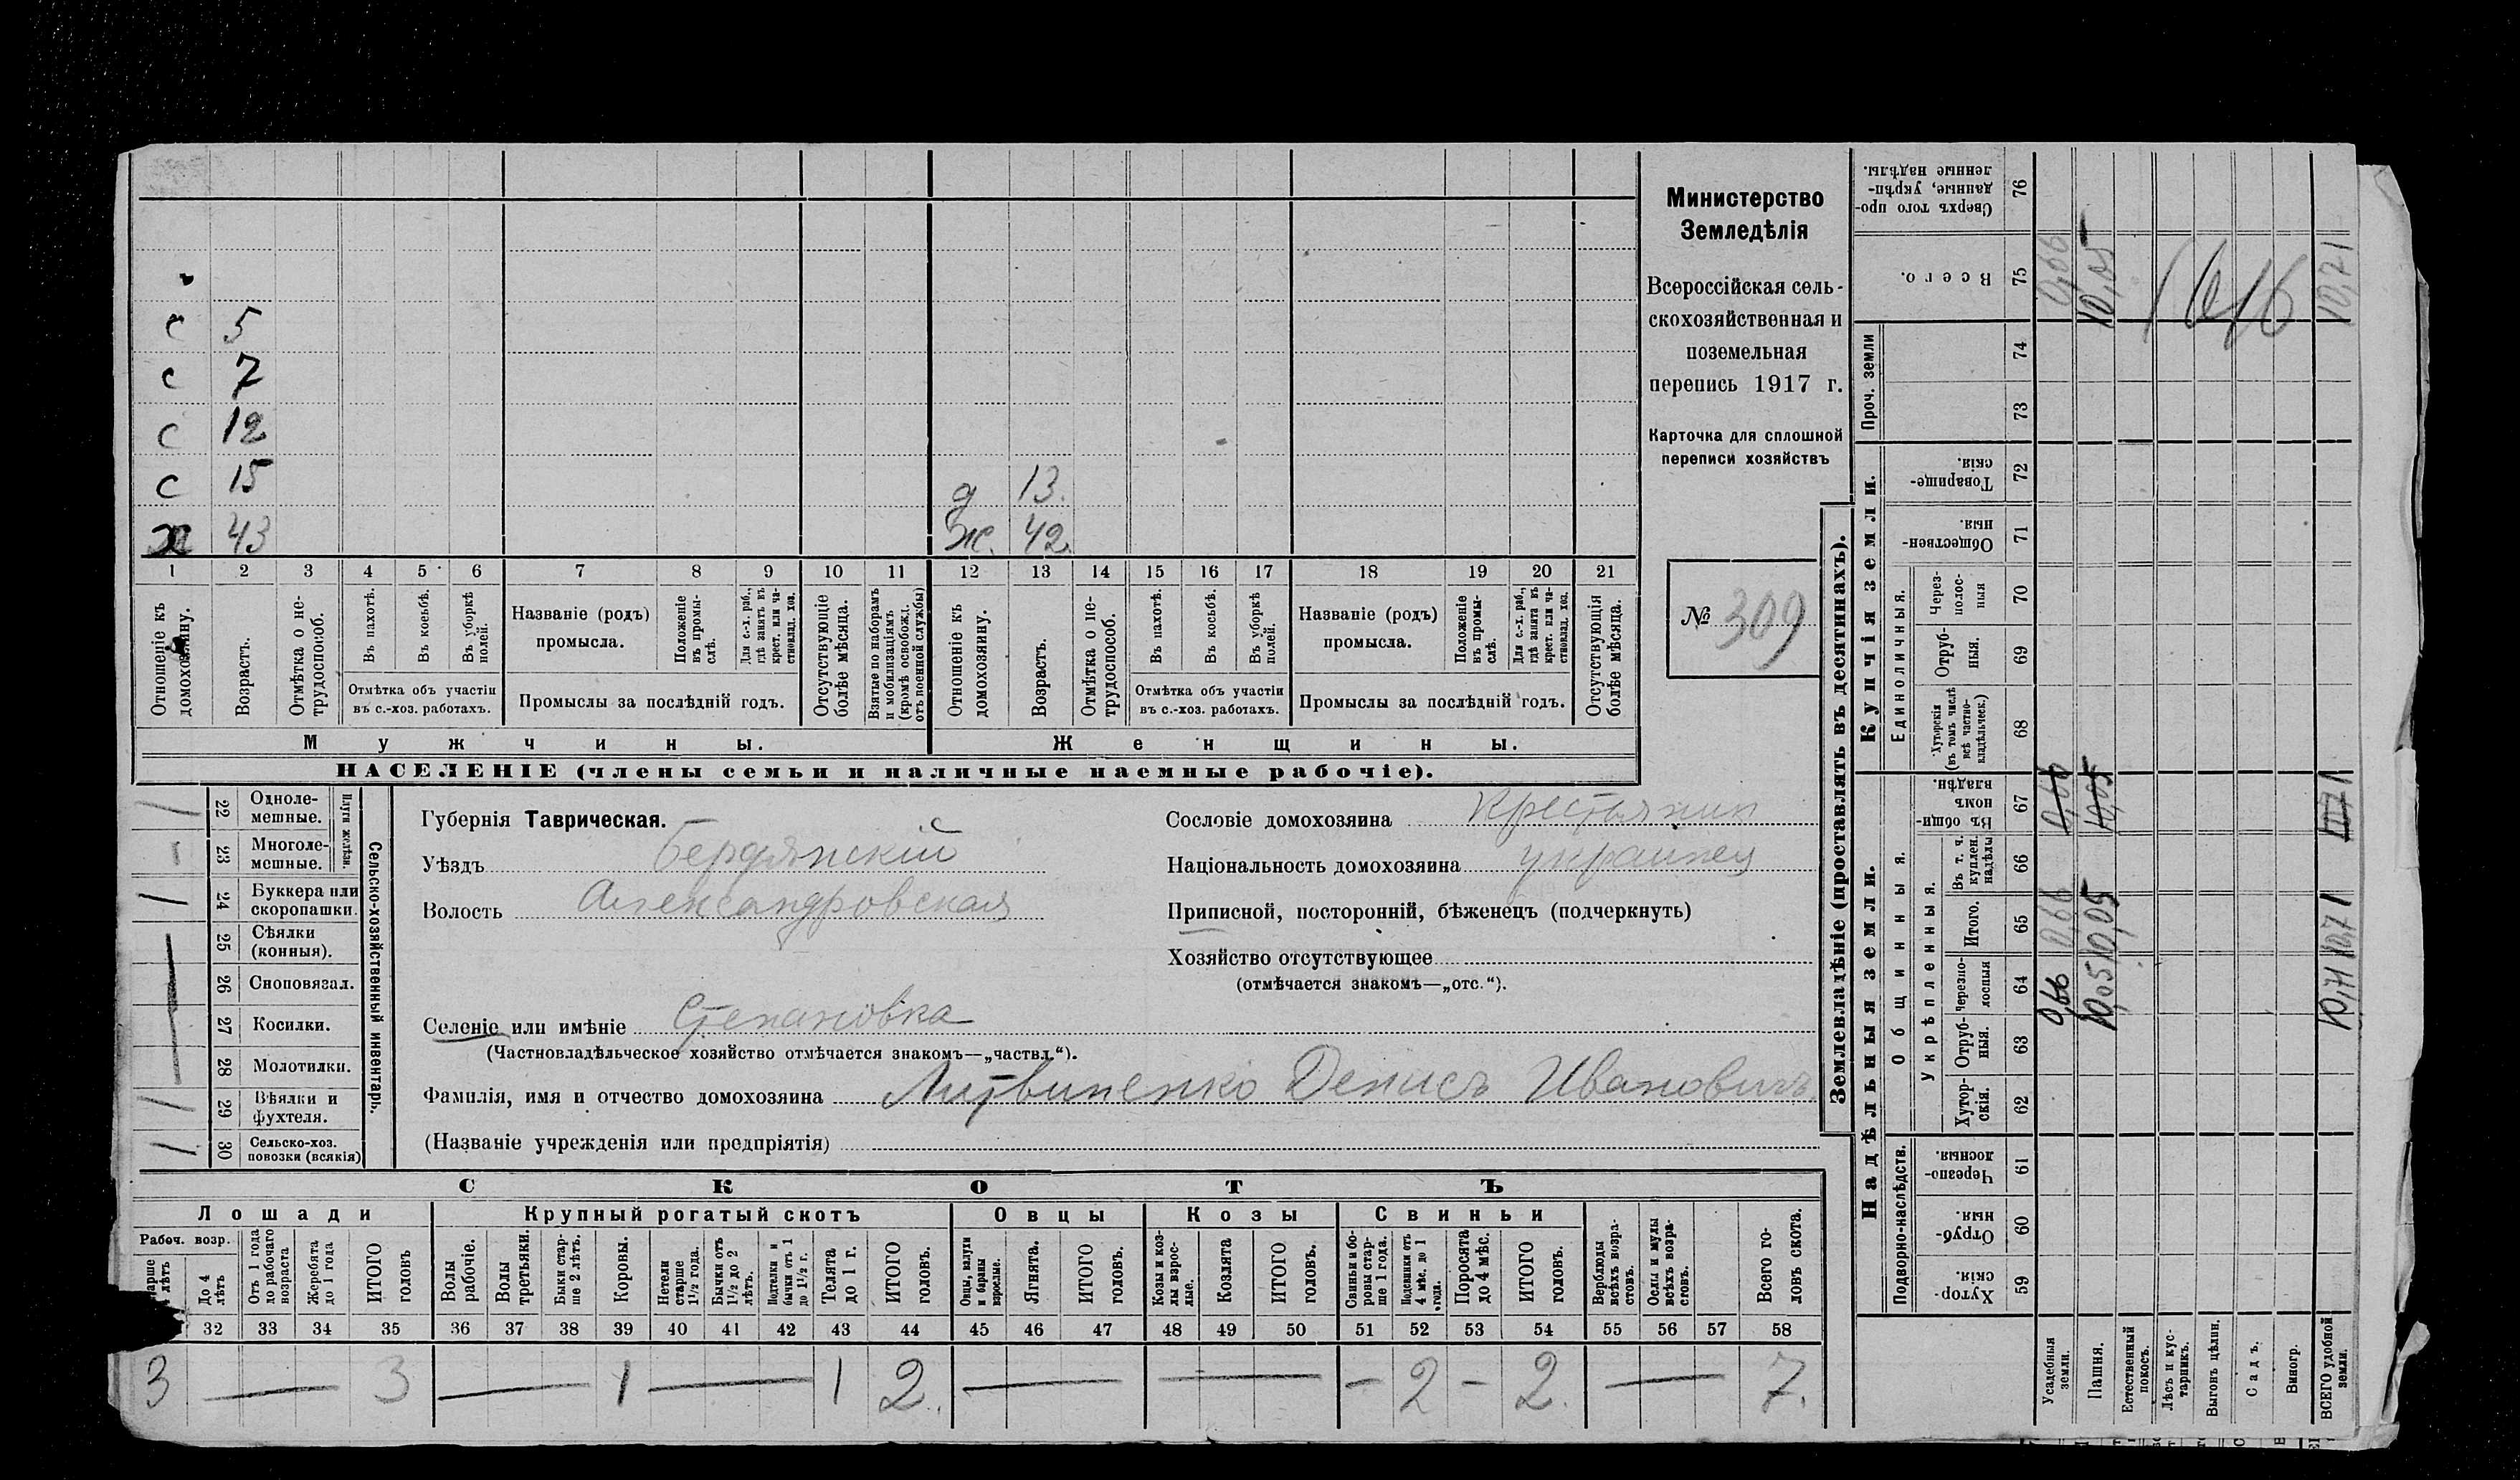 с 5
с 7
с 12
с 15 д 13.
х 43 ж. 42.
1 2 3 4 5 6 7 8 9 10 11 12 13 14 15 16 17 18 19 20 21
Отношеніе къ домохозяину.
Возрастъ.
Отмѣтка о нетрудоспособ.
Въ пахотѣ.
Въ косьбѣ.
Въ уборкѣ полей.
Отмѣтка объ участіи
въ с.-хоз. работахъ.
Названіе (родъ)
промысла.
Положеніе въ промыслѣ.
Для с.-х. раб., гдѣ занятъ въ крест. или частновлад. хоз.
Промыслы за послѣдній годъ.
Отсутствующіе болѣе мѣсяца.
Взятые по наборамъ и мобилизаціямъ (кромѣ освобожд. отъ военной службы)
Отношеніе къ домохозяину.
Возрастъ.
Отмѣтка о нетрудоспособ.
Въ пахотѣ.
Въ косьбѣ.
Въ уборкѣ полей.
Отмѣтка объ участіи
въ с.-хоз. работахъ.
Названіе (родъ)
промысла.
Положеніе въ промыслѣ.
Для с.-х. раб., гдѣ занята въ крест. или частновлад. хоз.
Промыслы за послѣдній годъ.
Отсутствующія болѣе мѣсяца.
Мужчины. Женщины.
НАСЕЛЕНІЕ (члены семьи и наличные наемные рабочіе).
Министерство
Земледѣлія
Всероссійская сель-
скохозяйственная и
поземельная
перепись 1917 г.
Карточка для сплошной
переписи хозяйствъ
№ 309
1 22 Одноле-
мешные.
– 23 Многоле-
мешные.
Плуги желѣзн.
1 24 Буккера или
скоропашки.
25 Сѣялки
(конныя).
26 Сноповязал.
27 Косилки.
28 Молотилки.
1 29 Вѣялки и
фухтеля.
1 30 Сельско-хоз.
повозки (всякія)
Сельско-хозяйственный инвентарь.
Губернія Таврическая.
Уѣздъ Бердянскій
Волость Александровская
Селеніе или имѣніе Степановка
(Частновладѣльческое хозяйство отмѣчается знакомъ—„частвл.“).
Фамилія, имя и отчество домохозяина Литвиненко Денисъ Ивановичъ
(Названіе учрежденія или предпріятія)
Сословіе домохозяина крестьянин
Національность домохозяина украинец
Приписной, посторонній, бѣженецъ (подчеркнуть)
Хозяйство отсутствующее
(отмѣчается знакомъ—„отс.“).
СКОТЪ
Лошади Крупный рогатый скотъ Овцы Козы Свиньи
Рабоч. возр.
До 4 лѣтъ
Отъ 1 года до рабочаго возраста
Жеребята до 1 года
ИТОГО головъ
Волы рабочіе.
Волы третьяки.
Быки старше 2 лѣтъ.
Коровы.
Нетели старше 1½ года.
Бычки отъ 1½ до 2 лѣтъ.
Подтелки и бычки отъ 1 до 1½ г.
Телята до 1 г.
ИТОГО головъ.
Овцы, валухи и бараны взрослые.
Ягнята.
ИТОГО головъ.
Козы и козлы взрослые.
Козлята
ИТОГО головъ.
Свиньи и боровы старше 1 года.
Подсвинки отъ 4 мѣс. до 1 года.
Поросята до 4 мѣс.
ИТОГО головъ.
Верблюды всѣхъ возрастовъ.
Ослы и мулы всѣхъ возрастовъ.
Всего головъ скота.
32 33 34 35 36 37 38 39 40 41 42 43 44 45 46 47 48 49 50 51 52 53 54 55 56 57 58
3 — 3 — 1 — 1 2. — — – 2 – 2. — 7.
Землевладѣніе (проставлять въ десятинахъ).
Надѣльныя земли. Купчія земли. Проч. земли
Подворно-наслѣдств.
Общинныя.
Укрѣпленныя.
Единоличныя.
Хуторскія. 59
Отрубныя. 60
Черезполосныя. 61
Хуторскія. 62
Отрубныя. 63
Черезполосныя 64
Итого. 65
Въ т. ч. куплен. надѣлы 66
Въ общинномъ владѣн. 67
Хуторскія (въ томъ числѣ всѣ частновладѣльческ.) 68
Отрубныя. 69
Черезполосныя 70
Общественныя. 71
Товарищескія. 72
73
74
Всего. 75
Сверхъ того проданные, укрѣпленные надѣлы. 76
Усадебныя земли. 0,66 0,66 0,66 0,66
Пашня. 10,05 10,05 10,05 10,05
Естественный покосъ.
Лѣсъ и кустарникъ.
Выгонъ цѣлин.
Садъ.
Виногр.
ВСЕГО удобной земли. 10,71 10,71 10,71 10,71